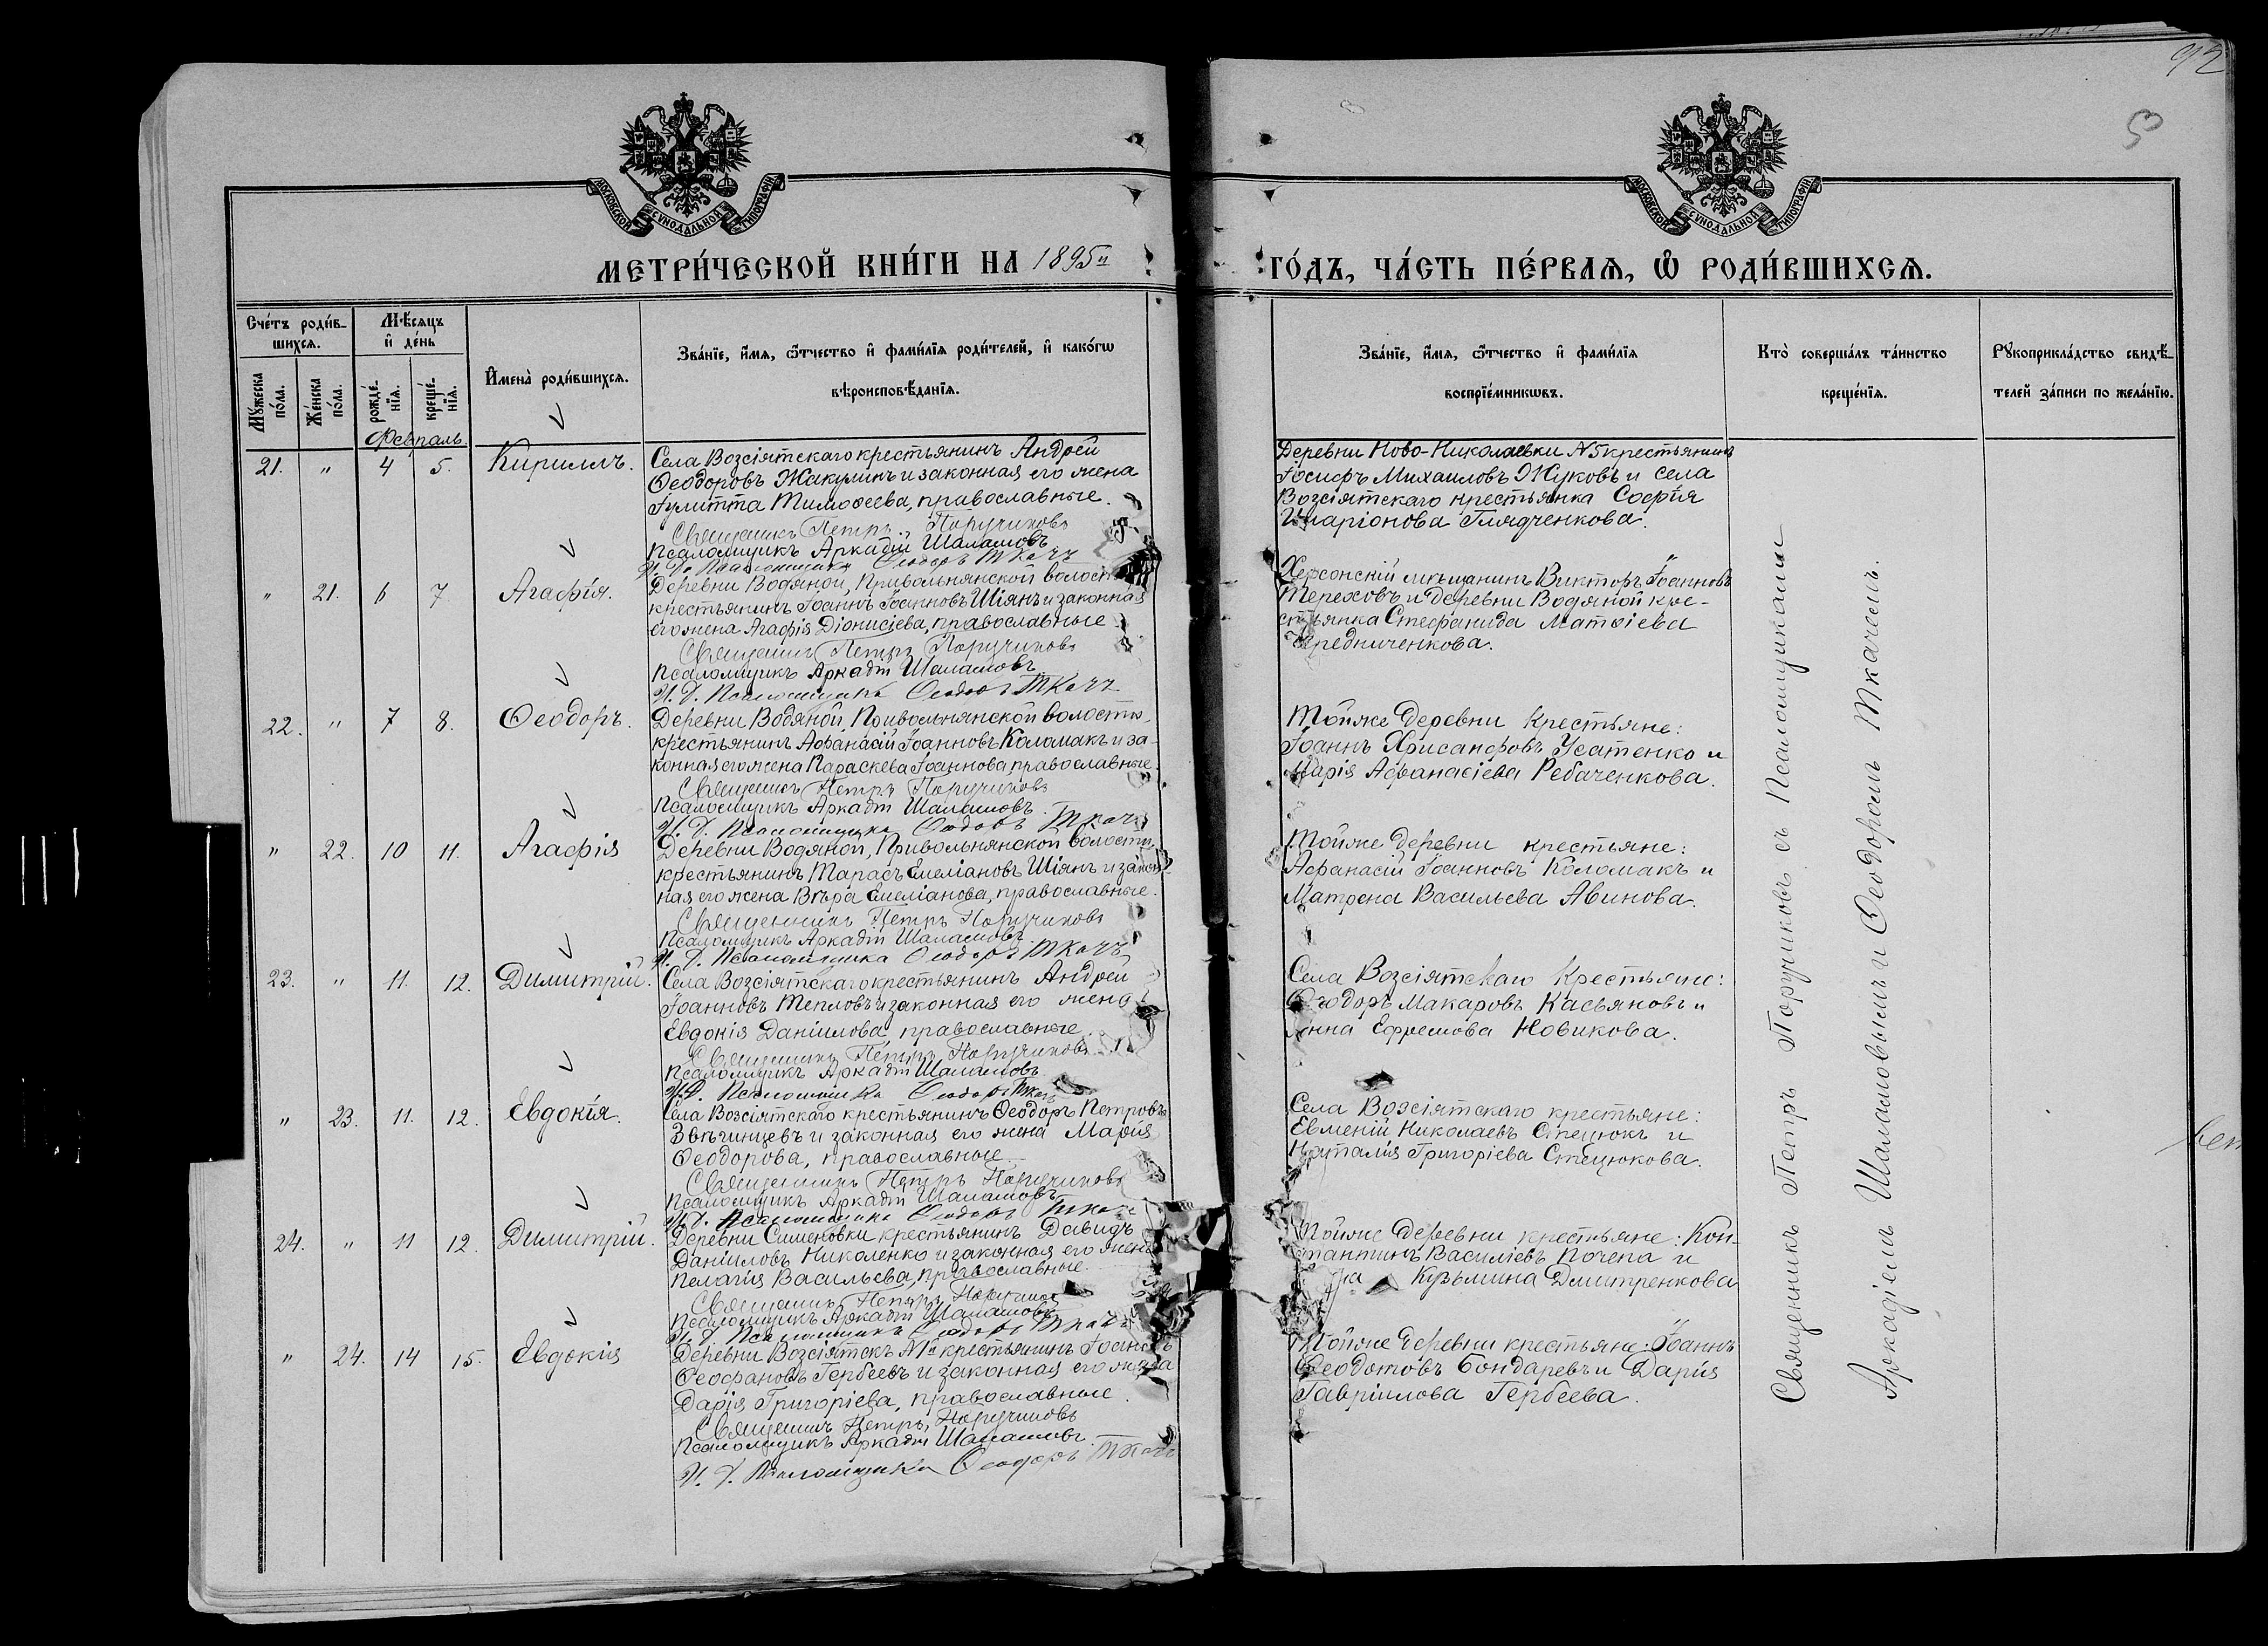 92
50
МОСКОВСКОЙ СѴНОДАЛЬНОЙ ТИПОГРАФІИ.
МОСКОВСКОЙ СѴНОДАЛЬНОЙ ТИПОГРАФІИ.
МЕТРИ́ЧЕСКОЙ КНИ́ГИ НА 1895й
ГО́ДЪ, ЧА́СТЬ ПЕ́РВАЯ, Ѡ РОДИ́ВШИХСЯ.
Сче́тъ роди́в-
шихся.
Мѣ́сяцъ
и҆ де́нь
Мꙋ́жеска
по́ла.
Же́нска
по́ла.
рожде́-
нїя.
креще́-
нїя.
И҆мена̀ роди́вшихся.
Зва́нїе, и҆́мя, ѻ҆́тчество и҆ фами́лїя роди́телей, и҆ како́гѡ
вѣроисповѣ́данїя.
Зва́нїе, и҆́мя, ѻ҆́тчество и҆ фами́лїя
воспрїе́мникѡвъ.
Кто̀ соверша́лъ та́инство
креще́нїя.
Рꙋкоприкла́дство свидѣ́-
телей за́писи по жела́нїю.
Февраль
21. " 4 5. Кириллъ.
Села Возсіятскаго крестьянинъ Андрей
Ѳеодоровъ Жакулинъ и законная его жена
Іулитта Тимоѳеева, православные.
Священникъ Петръ Поручиковъ
Псаломщикъ Аркадій Шаламовъ
И. Д. Псаломщика Ѳеодоръ Ткачъ
Деревни Ново-Николаевки №5 крестьянинъ
Іосифъ Михаиловъ Жуковъ и села
Возсіятскаго крестьянка Софія
Иларіонова Глядченкова.
" 21. 6 7. Агафія.
Деревни Водяной, Привольнянской волости
крестьянинъ Іоаннъ Іоанновъ Шіянъ и законная
его жена Агафія Діонисіева, православные
Священникъ Петръ Поручиковъ
Псаломщикъ Аркадій Шаламовъ
И. Д. Псаломщика Ѳеодоръ Ткачъ
Херсонскій мѣщанинъ Викторъ Іоанновъ
Тереховъ и деревни Водяной кре-
стьянка Стефанида Матѳіева
Чередниченкова.
22. " 7 8. Ѳеодоръ.
Деревни Водяной, Привольнянской волости,
крестьянинъ Афанасій Іоанновъ Коломакъ и за-
конная его жена Параскева Іоаннова православные.
Священникъ Петръ Поручиковъ
Псаломщикъ Аркадій Шаламовъ.
И. Д. Псаломщика Ѳеодоръ Ткачъ
Тойже деревни крестьяне:
Іоаннъ Хрисанфовъ Усатенко и
Марія Афанасіева Ребаченкова.
" 22. 10 11. Агафія
Деревни Водяной, Привольнянской волости,
крестьянинъ Тарасъ Емеліановъ Шіянъ и закон-
ная его жена Вѣра Емеліанова, православные.
Священникъ Петръ Поручиковъ
Псаломщикъ Аркадій Шаламовъ
И. Д. Псаломщика Ѳеодоръ Ткачъ
Тойже деревни крестьяне:
Афанасій Іоанновъ Коломакъ и
Матрена Васильева Авинова.
23. " 11. 12. Димитрій.
Села Возсіятскаго крестьянинъ Андрей
Іоанновъ Тепловъ и законная его жена
Евдокія Даніилова, православные.
Священникъ Петръ Поручиковъ
Псаломщикъ Аркадій Шаламовъ
И. Д. Псаломщика Ѳеодоръ Ткачъ
Села Возсіятскаго крестьяне:
Ѳеодоръ Макаровъ Касьяновъ и
Анна Ефремова Новикова.
" 23. 11. 12. Евдокія.
Села Возсіятскаго крестьянинъ Ѳеодоръ Петровъ
Звѣгинцевъ и законная его жена Марія
Ѳеодорова, православные.
Священникъ Петръ Поручиковъ
Псаломщикъ Аркадій Шаламовъ
И. Д. Псаломщика Ѳеодоръ Ткачъ
Села Возсіятскаго крестьяне:
Евменій Николаевъ Стецюкъ и
Наталія Григоріева Стецюкова.
24. " 11 12. Димитрій.
Деревни Сименовки крестьянинъ Давидъ
Даніиловъ Николенко и законная его жена
Пелагія Васильева, православные.
Священникъ Петръ Поручиковъ
Псаломщикъ Аркадій Шаламовъ
И. Д. Псаломщика Ѳеодоръ Ткачъ
Тойже деревни крестьяне: Кон-
стантинъ Василіевъ Почепа и
Кузьмина Дмитренкова
" 24. 14 15. Евдокія
Деревни Возсіятскъ №1й крестьянинъ Іоаннъ
Ѳеофановъ Гербеевъ и законная его жена
Дарія Григоріева, православные.
Священникъ Петръ Поручиковъ
Псаломщикъ Аркадій Шаламовъ.
И. Д. Псаломщика Ѳеодоръ Ткачъ
Тойже деревни крестьяне: Іоаннъ
Ѳеодотовъ Бондаревъ и Дарія
Гавріилова Гербеева.
Священникъ Петръ Поручиковъ съ Псаломщиками
Аркадіемъ Шаламовымъ и Ѳеодоромъ Ткачемъ.